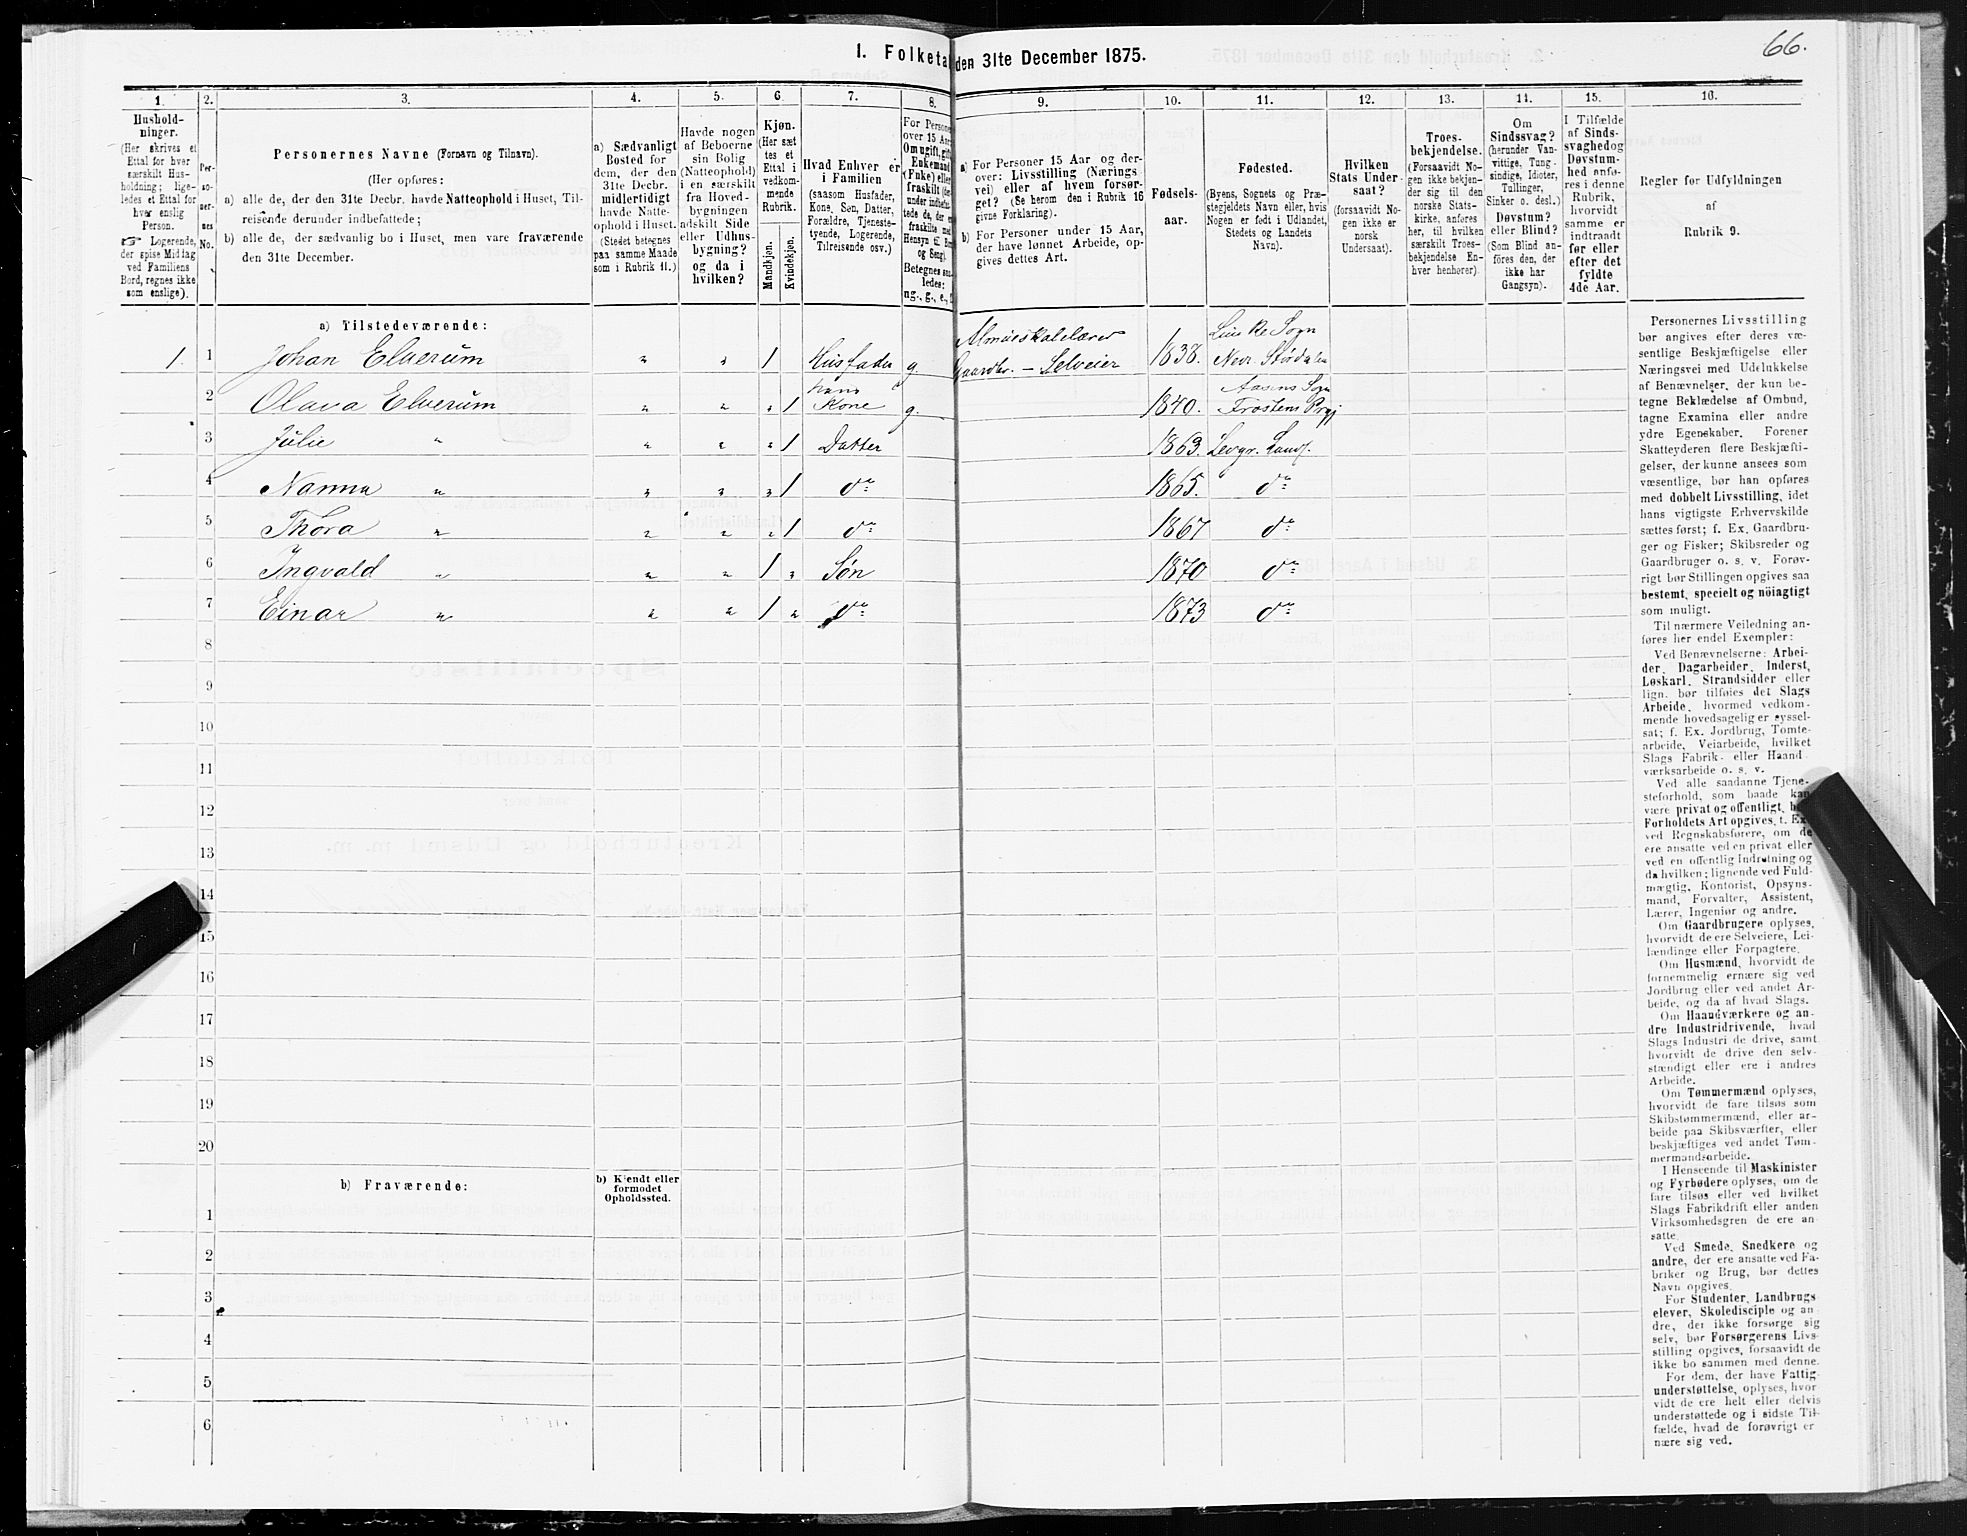 66.
1. Folketa den 31te December 1875.
1. 2. 3. 4. 5. 6. 7. 8. 9. 10. 11. 12. 13. 14. 15. 16.
Hushold-
ninger.
(Her skrives et
Ettal for hver
særskilt Hus-
holdning; lige-
ledes et Ettal for
hver enslig
Person.
☞ Logerende,
der spise Middag
ved Familiens
Bord, regnes ikke
som enslige).
Per-
so-
ner-
nes
No.
Personernes Navne (Fornavn og Tilnavn).
(Her opføres:
a) alle de, der den 31te Decbr. havde Natteophold i Huset, Til-
reisende derunder indbefattede;
b) alle de, der sædvanlig bo i Huset, men vare fraværende
den 31te December.
a) Sædvanligt
Bosted for
dem, der den
31te Decbr.
midlertidigt
havde Natte-
ophold i Huset.
(Stedet betegnes
paa samme Maade
som i Rubrik 11.)
Havde nogen
af Beboerne
sin Bolig
(Natteophold)
i en særskilt
fra Hoved-
bygningen
adskilt Side
eller Udhus-
bygning?
og da i
hvilken?
Kjøn.
(Her sæt
tes et
Ettal i
vedkom-
mende
Rubrik.
Mandkjøn.
Kvindekjøn.
Hvad Enhver er
i Familien
(saasom Husfader,
Kone, Søn, Datter,
Forældre, Tjeneste-
tyende, Logerende,
Tilreisende osv.)
For Persone
over 15 Aar
Om ugift, gift
Enkemand
(Enke) elle
fraskilt (de
under indbefat
tede de, der e
fraskilte med
Hensyn til Bo
og Seng).
Betegnes saa
ledes:
ug., g., e., f
a) For Personer 15 Aar og der-
over: Livsstilling (Nærings
vei) eller af hvem forsør-
get? (Se herom den i Rubrik 16
givne Forklaring).
b) For Personer under 15 Aar,
der have lønnet Arbeide, op-
gives dettes Art.
Fødsels-
aar.
Fødested.
(Byens, Sognets og Præ-
stegjeldets Navn eller, hvis
Nogen er født i Udlandet,
Stedets og Landets
Navn).
Hvilken
Stats Under-
saat?
(forsaavidt No-
gen ikke er
norsk
Undersaat).
Troes-
bekjendelse.
(Forsaavidt No-
gen ikke bekjen-
der sig til den
norske Stats-
kirke, anføres
her, til hvilken
særskilt Troes-
bekjendelse En-
hver henhører).
Om
Sindssvag?
(herunder Van-
vittige, Tung-
sindige, Idioter,
Tullinger,
Sinker o. desl.)
Døvstum?
eller Blind?
(Som Blind an-
føres den, der
ikke har
Gangsyn).
I Tilfælde
af Sinds-
svaghed og
Døvstum-
hed anfø-
res i denne
Rubrik,
hvorvidt
samme er
indtraadt
før eller
efter det
fyldte
4de Aar.
Regler for Udfyldningen
af
Rubrik 9.
a) Tilstedeværende:
1. 1 Johan Elverum " " 1 Husfader g. Almueskolelærer Gaardbr. - Selveier 1838. Sogn Nedr. Størdalen
2 Olava Elverum " " " 1 hans Kone g. 1840. Aasens Sogn Frostens Prgj
3 Julie " " " " 1 Datter 1863. Levgr. Lands.
4 Nanna " " " " 1 do 1865. do
5 Thora " " " " 1 do 1867 do
6 Ingvald " " " 1 " Søn 1870 do
7 Einar " " " 1 " do 1873 do
8
9
10
11
12
13
14
15
16
17
18
19
20
b) Fraværende:
b) Kjendt eller
formodet
Opholdssted.
1
2
3
4
5
6
Personernes Livsstilling
bør angives efter deres væ-
sentlige Beskjæftigelse eller
Næringsvei med Udelukkelse
af Benævnelser, der kun be-
tegne Beklædelse af Ombud,
tagne Examina eller andre
ydre Egenskaber. Forener
Skatteyderen flere Beskjæfti-
gelser, der kunne ansees som
væsentlige, bør han opføres
med dobbelt Livsstilling, idet
hans vigtigste Erhvervskilde
sættes først; f. Ex. Gaardbru-
ger og Fisker; Skibsreder og
Gaardbruger o. s. v. Forøv-
rigt bør Stillingen opgives saa
bestemt, specielt og nöiagtigt
som muligt.
Til nærmere Veiledning an-
føres her endel Exempler:
Ved Benævnelserne: Arbei-
der, Dagarbeider, Inderst,
Løskarl, Strandsidder eller
lign. bør tilføies det Slags
Arbeide, hvormed vedkom-
mende hovedsagelig er syssel-
sat; f. Ex. Jordbrug, Tomte-
arbeide, Veiarbeide, hvilket
Slags Fabrik- eller Haand-
værksarbeide o. s. v.
Ved alle saadanne Tjene-
steforhold, som baade kan
være privat og offentligt, bør
Forholdets Art opgives, f. Ex.
ved Regnskabsførere, om de
ere ansatte ved en privat eller
ved en offentlig Indretning og
da hvilken; lignende ved Fuld-
mægtig, Kontorist, Opsyns-
mand, Forvalter, Assistent,
Lærer, Ingeniør og andre.
Om Gaardbrugere oplyses,
hvorvidt de ere Selveiere, Lei-
lændinge eller Forpagtere.
Om Husmænd, hvorvidt de
fornemmelig ernære sig ved
Jordbrug eller ved andet Ar-
beide, og da af hvad Slags.
Om Haandværkere og an-
dre Industridrivende, hvad
Slags Industri de drive, samt
hvorvidt de drive den selv-
stændigt eller ere i andres
Arbeide.
Om Tømmermænd oplyses,
hvorvidt de fare tilsøs som
Skibstømmermænd, eller ar-
beide paa Skibsværfter, eller
beskjæftiges ved andet Tøm-
mermandsarbeide.
I Henseende til Maskinister
og Fyrbødere oplyses, om de
fare tilsøs eller ved hvilket
Slags Fabrikdrift eller anden
Virksomhedsgren de ere an-
satte.
Ved Smede, Snedkere og
andre, der ere ansatte ved Fa-
briker og Brug, bør dettes
Navn opgives.
For Studenter, Landbrugs-
elever, Skoledisciple og an-
dre, der ikke forsørge sig
selv, bør Forsørgerens Livs-
stilling opgives, forsaavidt de
ikke bo sammen med denne.
For dem, der have Fattig-
understøttelse, oplyses, hvor-
vidt de ere helt eller delvis
understøttede og i sidste Til-
fælde, hvad de forøvrigt er
nære sig ved.